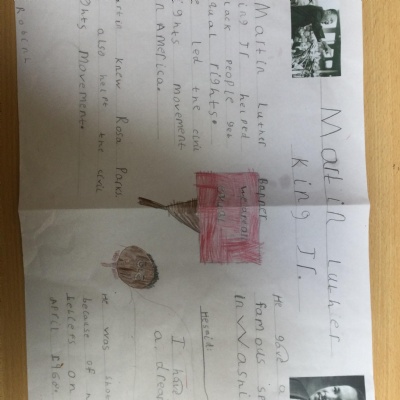 Martin Luther
King Jr.
Martin Luther
ing Jr helped
lack people get
qual rights.
e led the civil
ights movement
in America.
artin knew Rosa Parks
also helped the civil
ghts movement.
Banner
He gave a
famous sp
in Washin
I have
a drea
He was shot
because of h
beliefs on
April 196